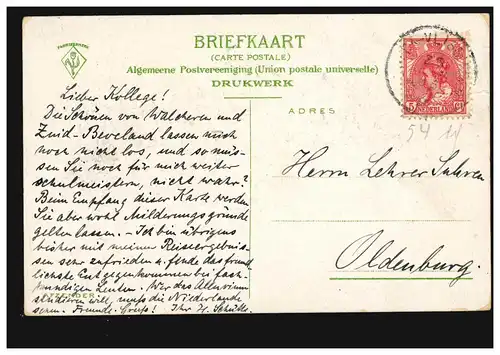 BRIEFKAART
(CARTE POSTALE)
Algemeene Postvereeniging (Union postale universelle)
DRUKWERK
ADRES
5 Ct
NEDERLAND
54
Lieber Kollege!
Die Schönen von Walcheren und
Zuid-Beveland lassen mich
noch nicht los, und so müs-
sen Sie noch für mich weiter
schulmeistern, nicht wahr?
Beim Empfang dieser Karte werden
Sie aber wohl Milderungsgründe
gelten lassen. Ich bin übrigens
bisher mit meinen Reiseergebnis-
sen sehr zufrieden u. finde das freund
lichste Entgegenkommen bei fach-
kundigen Leuten. Wer das Alluvium
studieren will, muß die Niederlande
sehen. Freundl. Gruß! Ihr H. Schütte.
AFZENDER
Herrn Lehrer Suhren
Oldenburg.